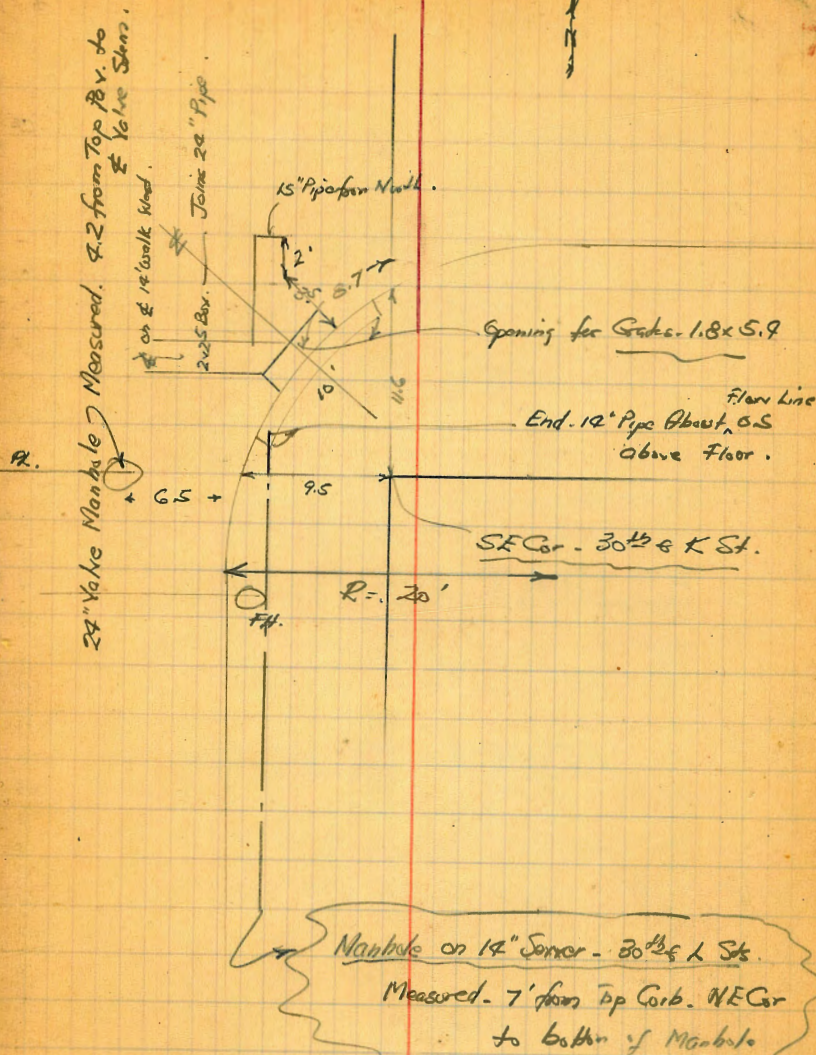 24" Valve Manhole Measured. 4.2 from Top Pav. to
℄ Valve Stem.
on ℄ 14' Walk West.
2x2.5 Box. — Joins 24" Pipe.
15" Pipe from North.
2'
3.5
8.7
Opening for Grades. 1.8 x 5.9
10'
11.6
Flow Line
End. 14" Pipe About ^ 0.5
above Floor.
PL.
6.5
9.5
SE Cor - 30th & K St.
R = 20'
F.H.
Manhole on 14" Sewer - 30th & L Sts.
Measured - 7' from Top Corb. NE Cor
to bottom of Manhole